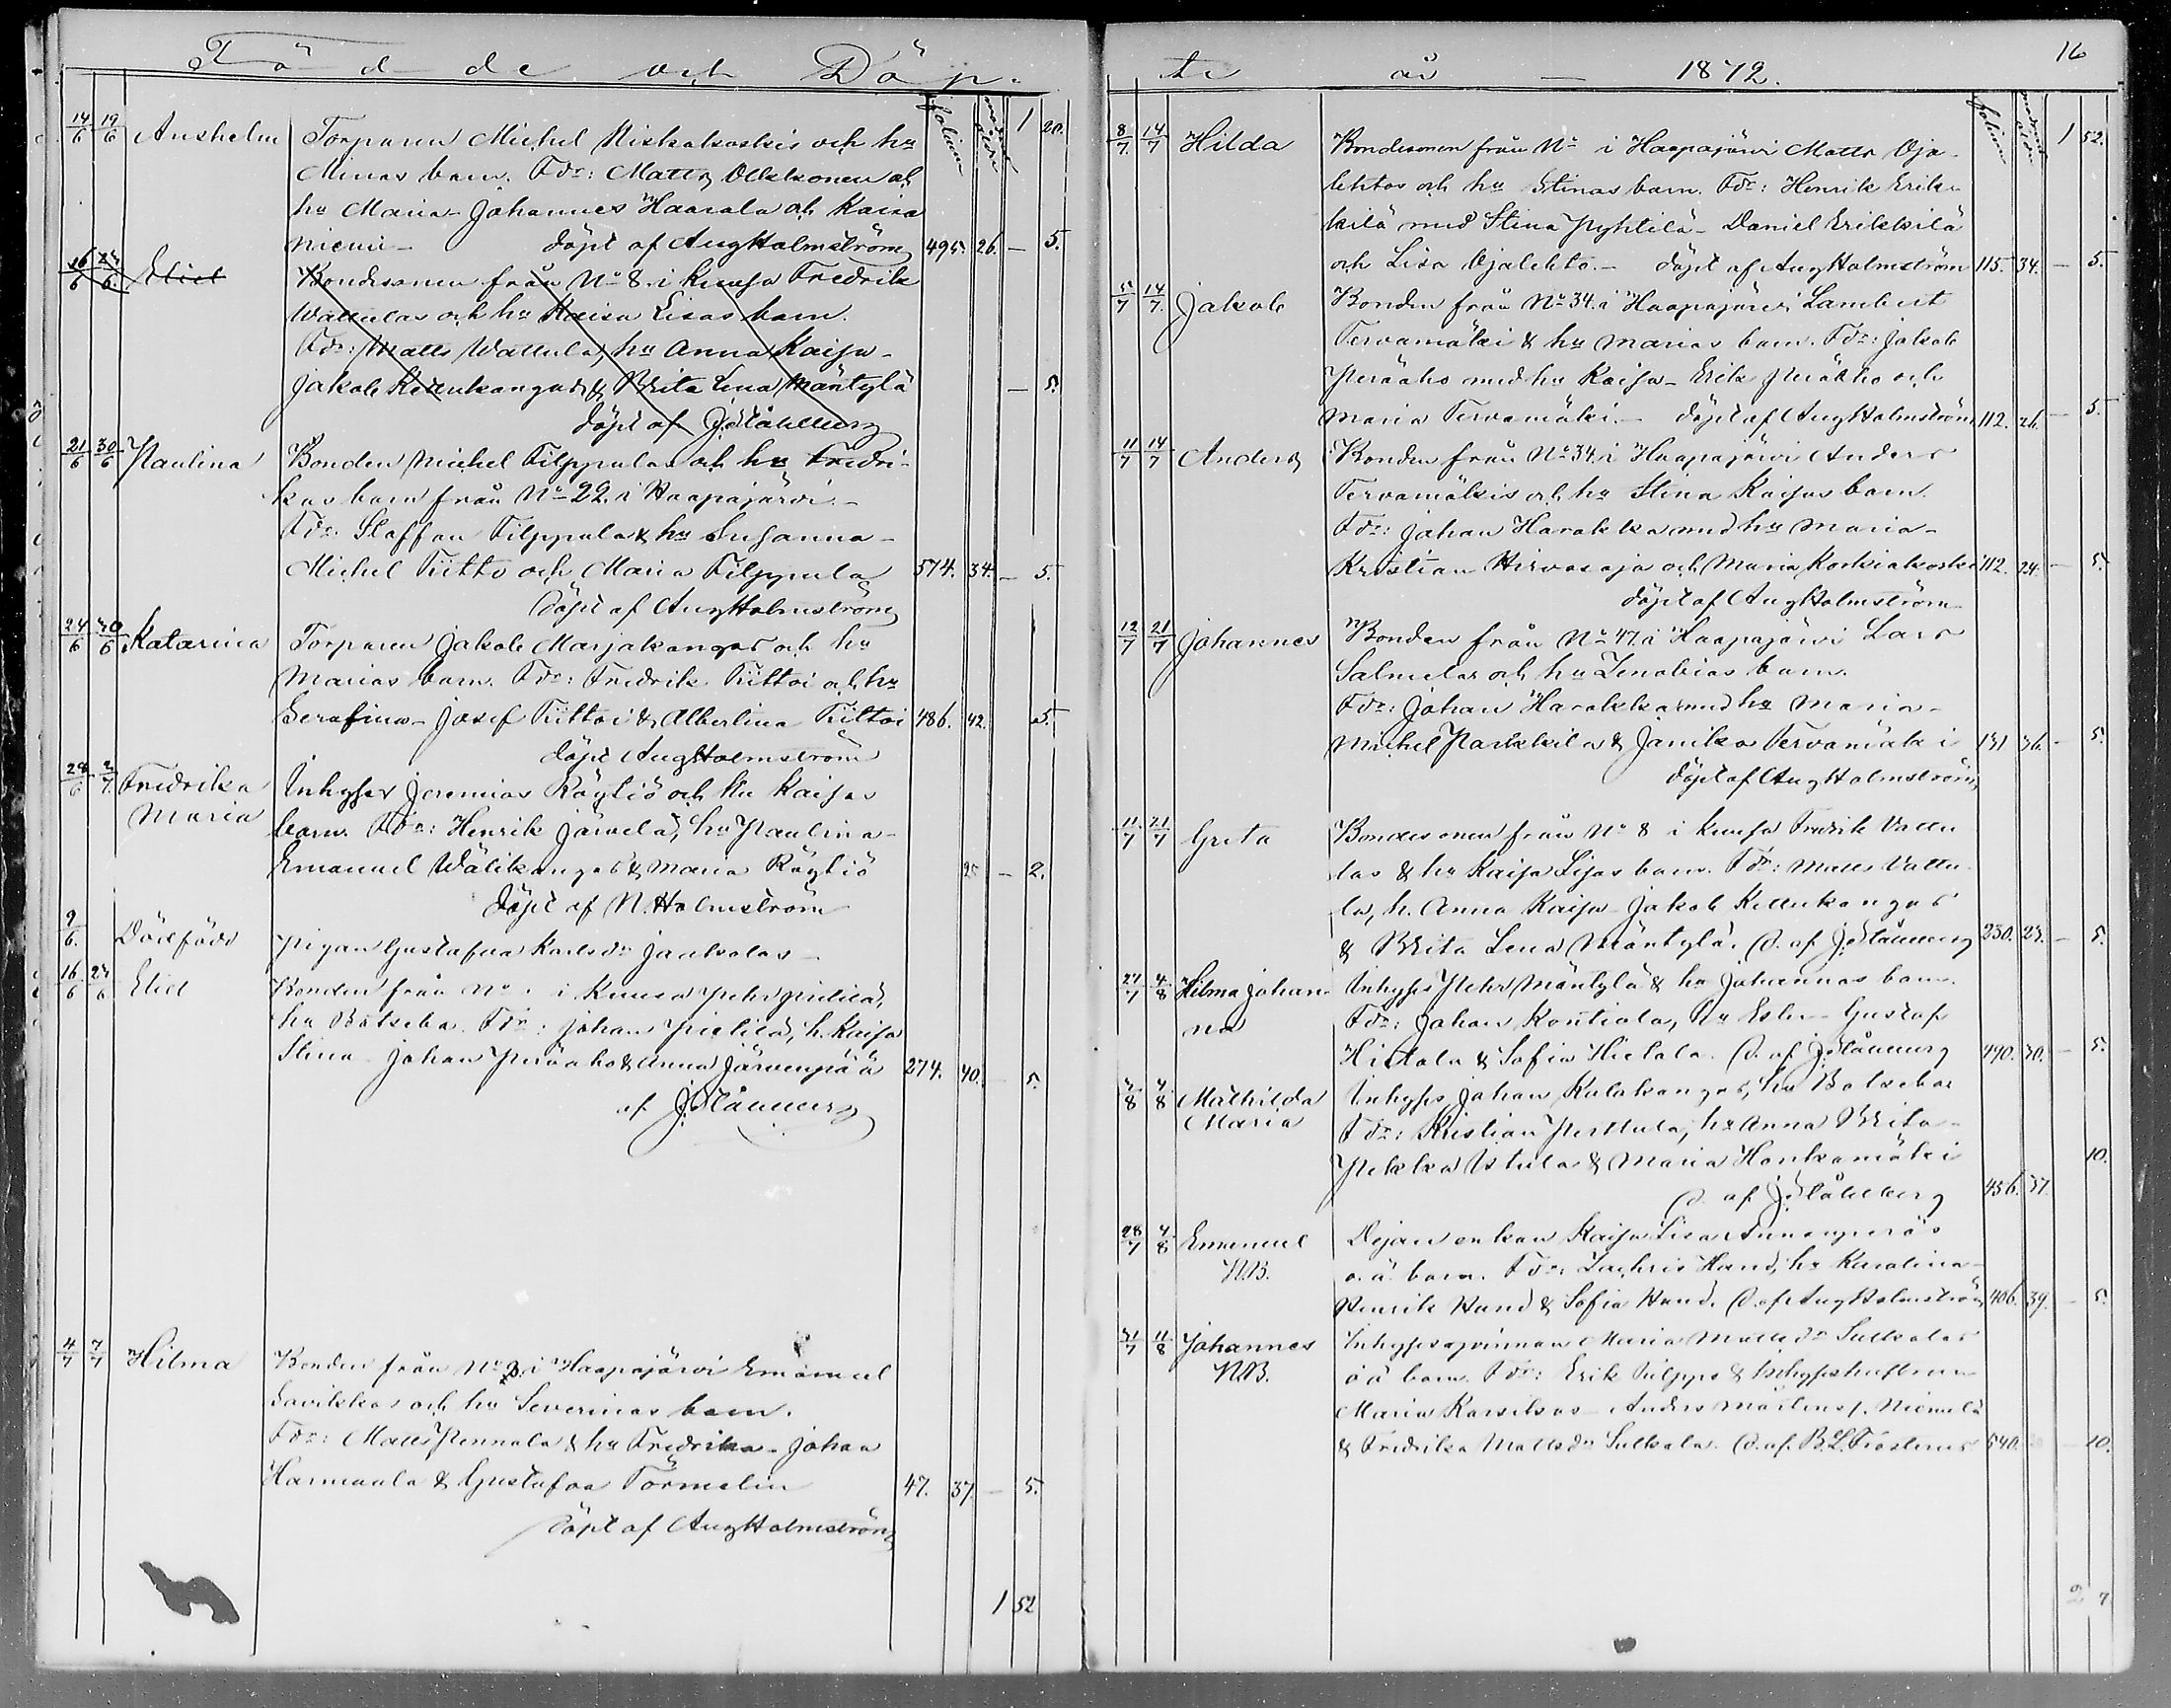 Födde och Döp-
folium moders ålder 1 20.
14/6 19/6 Anshelm Torparen Michel Niskakoskis och hu
Minas barn. Fdr: Matts Ollikonen och
hu Maria - Johannes Haarala och Kaisa
Niemi - döpt af Aug Holmström 495. 26. - 5.
16/6 23/6 Eliel Bondesonen från No 8. i Kuusa Fredrik
Wattulas och hu Kaisa Lisas barn.
Fdr: Matts Wattula, hu Anna Kaisa -
Jakob Kellukangas & Brita Lena Mäntylä - 5.
döpt af J. Ståhlberg
21/6 30/6 Paulina Bonden Michel Filppulas och hu Fredri-
kas barn från No 22. i Haapajärvi. -
Fdr. Staffan Filppula & hu Susanna -
Michel Tiitto och Maria Filppula 574. 34. - 5.
Döpt af Aug Holmström
24/6 30/6 Katarina Torparen Jakob Marjakangas och hu
Marias barn. Fdr: Fredrik Tiittoi och hu
Serafina - Josef Tiittoi & Albertina Tiittoi 486. 42. 5.
döpt Aug Holmström
28/6 2/7 Fredrika Inhyses Jeremias Räytiö och hu Kaisas
Maria barn. Fdr: Henrik Järvelä, hu Paulina -
Emanuel Wälikangas & Maria Räytiö 25 - 2.
döpt af N. Holmström
9/6. Dödfödd Pigan Gustafva Karlsdr Jaukolas -
16/6 23/6 Eliel Bonden från No i Kuusa Petr Pietilä,
hu Batseba. Fdr: Johan Pietilä, h. Kaisa
Stina - Johan Peräaho & Anna Järvenpää 274. 40. - 5.
af J. Ståhlberg
4/7 7/7 Hilma Bonden från No 3. i Haapajärvi Emanuel
Savikkos och hu Severinas barn.
Fdr: Matts Pennala & hu Fredrika - Johan
Harmaala & Gustafva Törmelin 47. 37. - 5.
Döpt af Aug Holmström
1 52
te år - 1872. 16
folium moders ålder 1 52.
8/7. 14/7 Hilda Bondesonen från No i Haapajärvi Matts Oja-
lehtos och hu Stinas barn. Fdr: Henrik Erik-
kilä med Stina Pyhtilä - Daniel Erikkilä
och Lisa Ojalehto. - döpt af Aug Holmström 115. 34. - 5.
5/7 14/7. Jakob Bonden från No 34. i Haapajärvi Lambert
Tervamäki & hu Marias barn. Fdr: Jakob
Peräaho med hu Kaisa - Erik Peräaho och
Maria Tervamäki. - döpt af Aug Holmström 112. 26. - 5.
11/7 14/7 Anders Bonden från No 34. i Haapajärvi Anders
Tervamäkis och hu Stina Kaisas barn.
Fdr: Johan Harakka med hu Maria -
Kristian Hirvasoja och Maria Korkiakoski 112. 24. - 5.
döpt af Aug Holmström
12/7 21/7 Johannes Bonden från No 47. i Haapajärvi Lars
Salmelas och hu Zenobias barn.
Fdr: Johan Harakka med hu Maria -
Michel Parkkila & Janika Tervamäki 131 36. - 5.
döpt af Aug Holmström
11/7 21/7 Greta Bondesonen från No 8 i Kuusa Fredrik Vattu
las & hu Kaisa Lisas barn. Fdr: Matts Vattu-
la, h. Anna Kaisa - Jakob Kellukangas
& Brita Lena Mäntylä. D. af J. Ståhlberg 230. 23. - 5.
27/7 4/8 Hilma Johan- Inhyses Petr Mäntylä & hu Johannas barn.
na Fdr: Johan Kontiola, hu Ester - Gustaf
Hietala & Sofia Hietala. D. af J. Ståhlberg 490. 30. - 5.
3/8 4/8 Mathilda Inhyses Johan Kalakangas, hu Batsebas
Maria Fdr: Kristian Perttula, hu Anna Brita -
Pekka Ristula & Maria Honkamäki 10.
D. af J. Ståhlberg 456. 37.
28/7 4/8 Emanuel Dejan enkan Kaisa Lisa Annanperäs
N.B. o.ä. barn. Fdr: Zachris Hand, hu Karolina -
Henrik Hand & Sofia Hand. D. af Aug Holmström 406. 39. - 5.
31/7 11/8 Johannes Inhysesqvinnan Maria Mattsdr Sulkalas
N.B. oä barn. Fdr: Erik Filppo & Inhyseshustrun
Maria Karsikas - Anders Mårtens s. Niemelä
& Fredrika Mattsdr Sulkala. D. af. B. L. Frosterus 540. - 10.
2 7